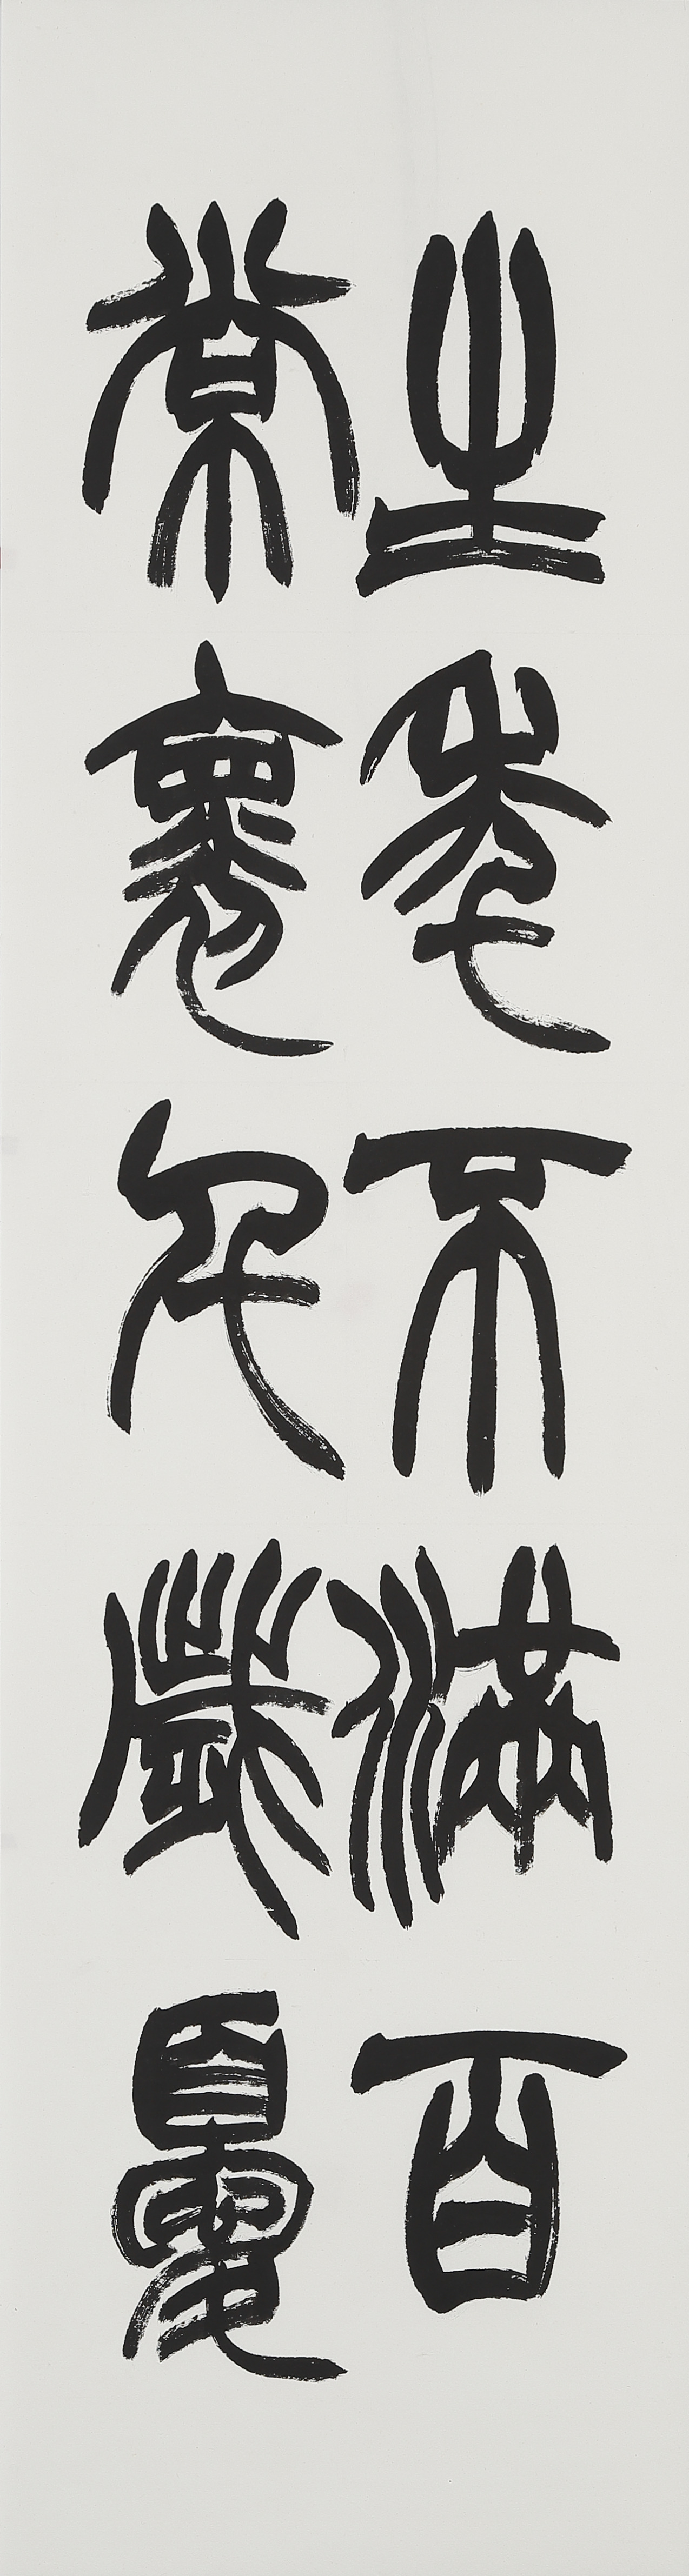 生年不滿百
常褱千歲憂